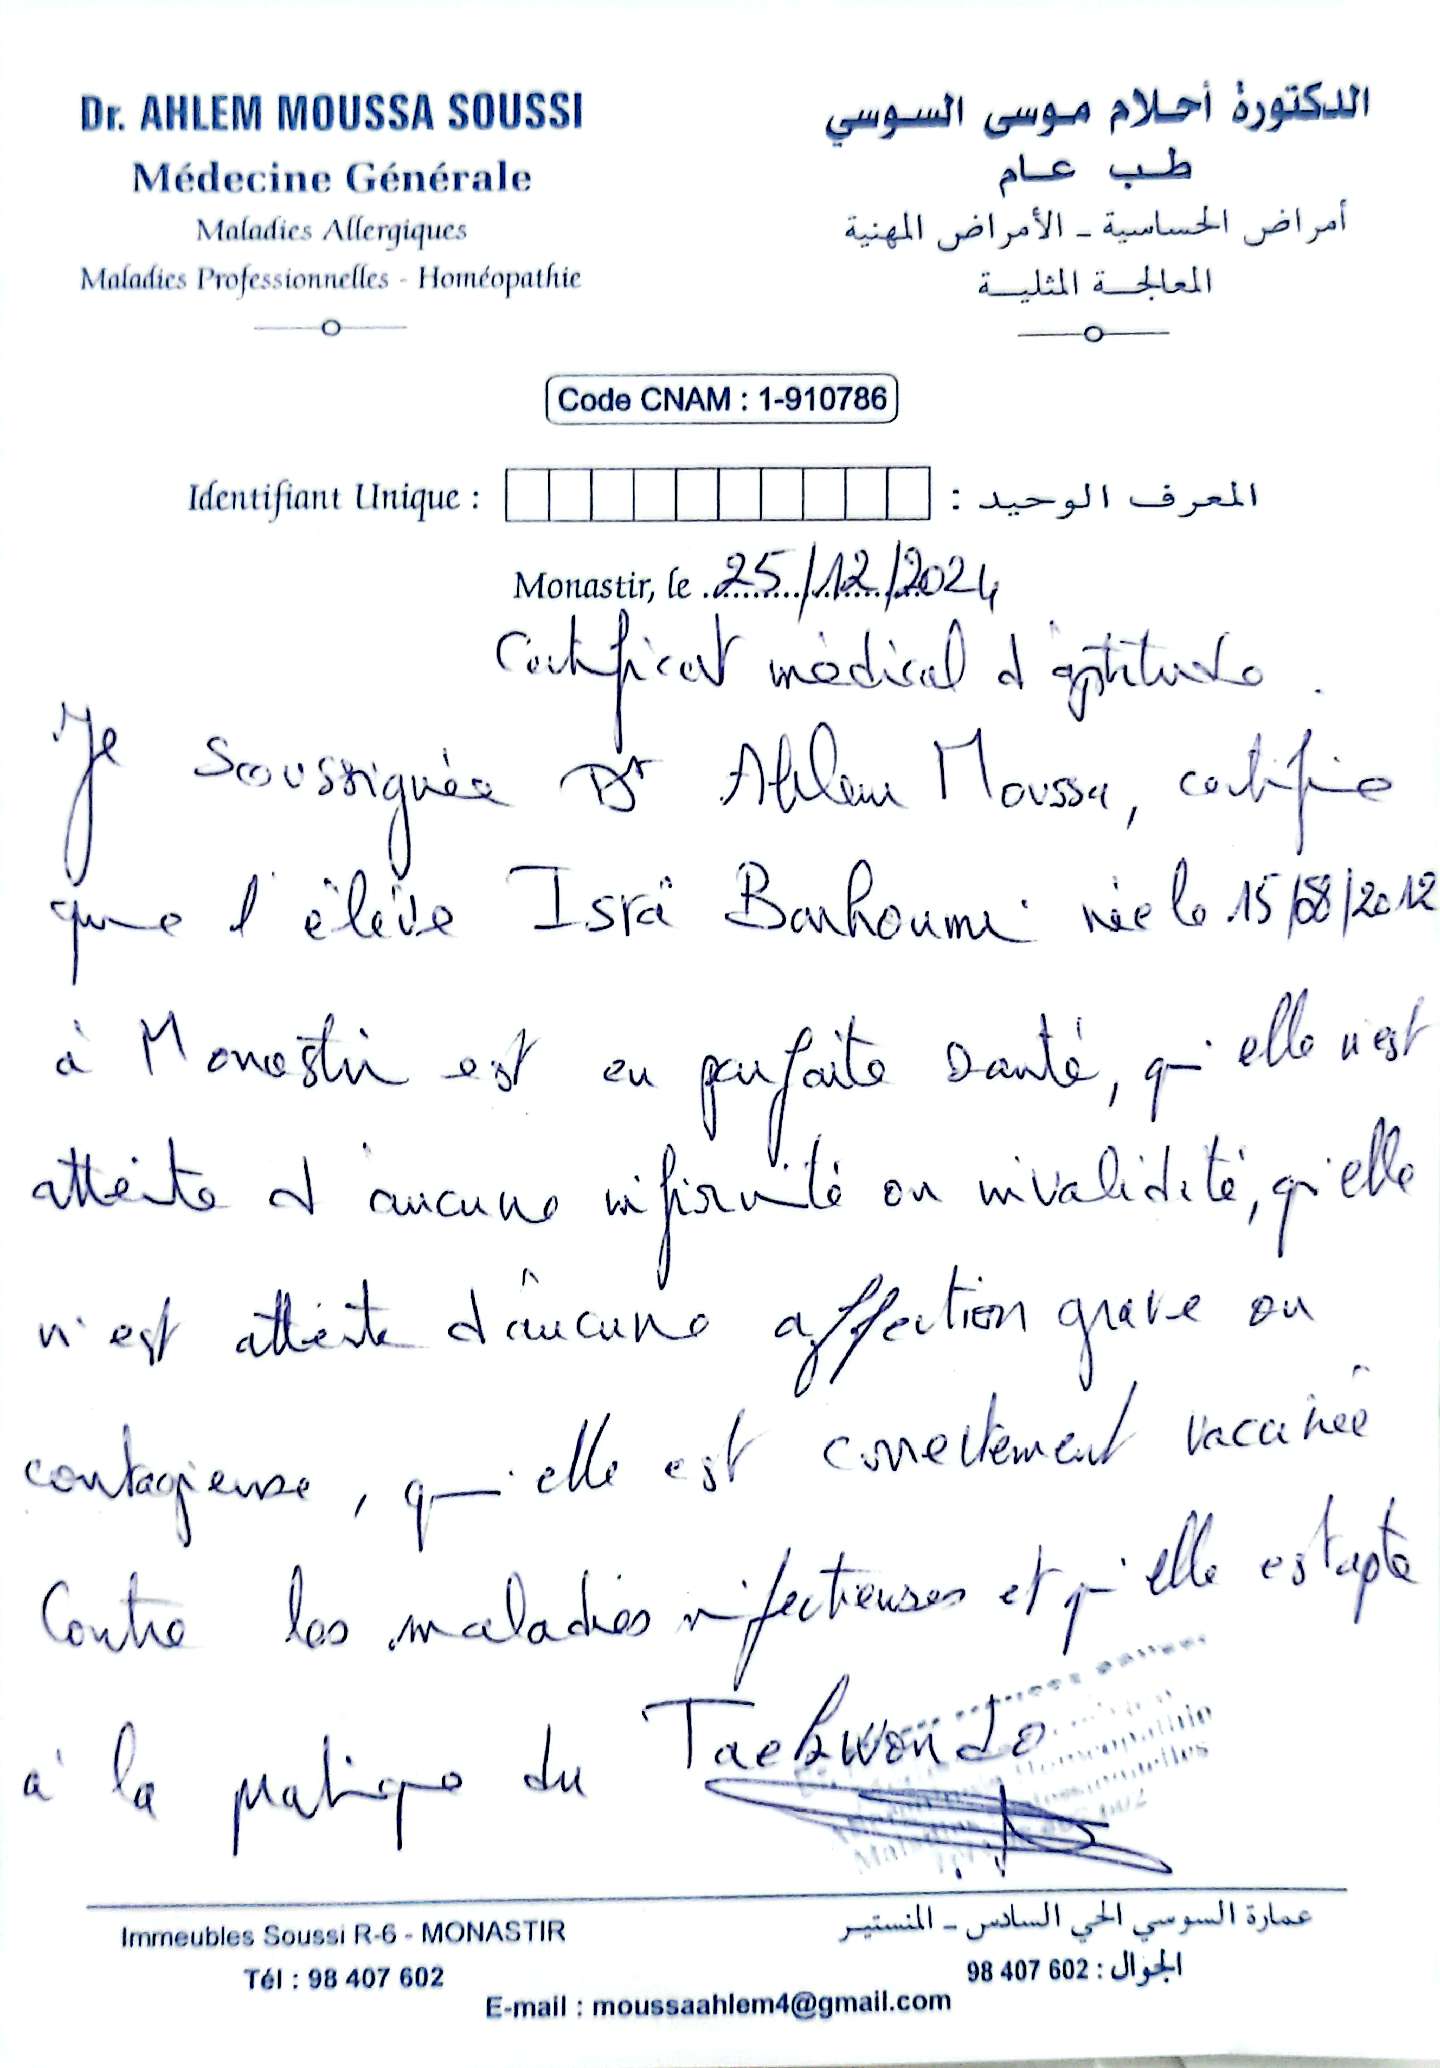 Dr. AHLEM MOUSSA SOUSSI
Médecine Générale
Maladies Allergiques
Maladies Professionnelles - Homéopathie
الدكتورة أحلام موسى السوسي
طب عام
أمراض الحساسية - الأمراض المهنية
المعالجة المثلية
Code CNAM : 1-910786
Identifiant Unique : المعرف الوحيد :
Monastir, le 25/12/2024
Certificat médical d'aptitude.
Je soussignée Dr Ahlem Moussa, certifie
que l'élève Isra Barhoumi née le 15/08/2012
à Monastir est en parfaite santé, qu'elle n'est
atteinte d'aucune infirmité ou invalidité, qu'elle
n'est atteinte d'aucune affection grave ou
contagieuse, qu'elle est correctement vaccinée
Contre les maladies infectieuses et qu'elle est apte
à la pratique du Taekwondo
Immeubles Soussi R-6 - MONASTIR
Tél : 98 407 602
عمارة السوسي الحي السادس - المنستير
الجوال : 98 407 602
E-mail : moussaahlem4@gmail.com